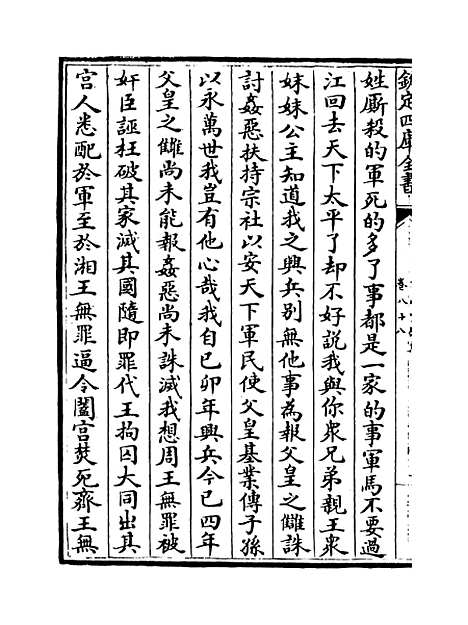 欽定四庫全書
卷八十八
姓厮殺的軍死的多了事都是一家的事軍馬不要過
江回去天下太平了却不好說我與你衆兄弟親王衆
妹妹公主知道我之興兵别無他事為報父皇之讎誅
討姦惡扶持宗社以安天下軍民使父皇基業傳子孫
以永萬世我豈有他心哉我自己卯年興兵今已四年
父皇之讎尚未能報姦惡尚未誅滅我想周王無罪被
奸臣誣枉破其家滅其國隨即罪代王拘囚大同出其
宫人悉配於軍至於湘王無罪逼令闔宫焚死齊王無